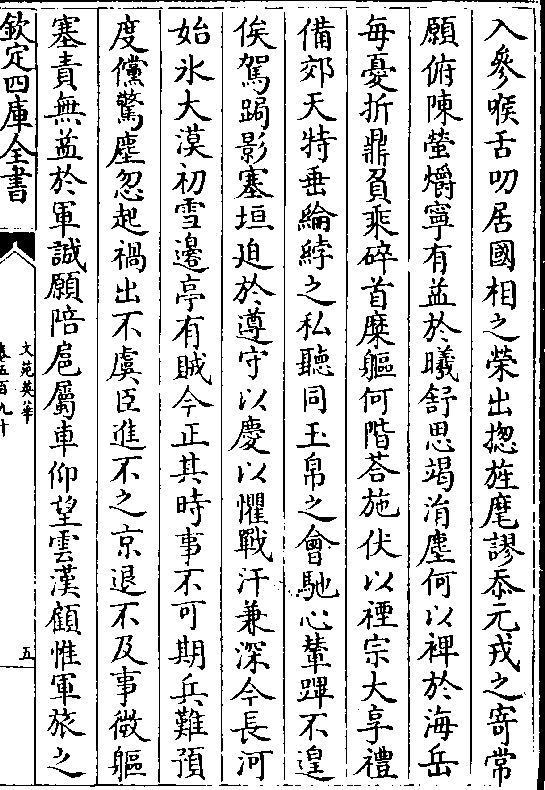 入參喉舌叨居國相之榮出揔旌麾謬忝元戎之寄常
願俯陳螢爝寧有益於曦舒思竭涓塵何以裨於海岳
每憂折鼎負乘碎首糜軀何階荅施伏以禋宗大享禮
備郊天特垂綸綍之私聽同玉帛之會馳心輦蹕不遑
俟駕跼影塞垣迫於遵守以慶以懼戰汗兼深今長河
始氷大漠初雪邊亭有賊今正其時事不可期兵難預
度儻驚塵忽起禍出不虞臣進不之京退不及事微軀
塞責無益於軍誠願陪扈屬車仰望雲漢顧惟軍旅之
欽定四庫全書
文苑英華
卷五百九十
五